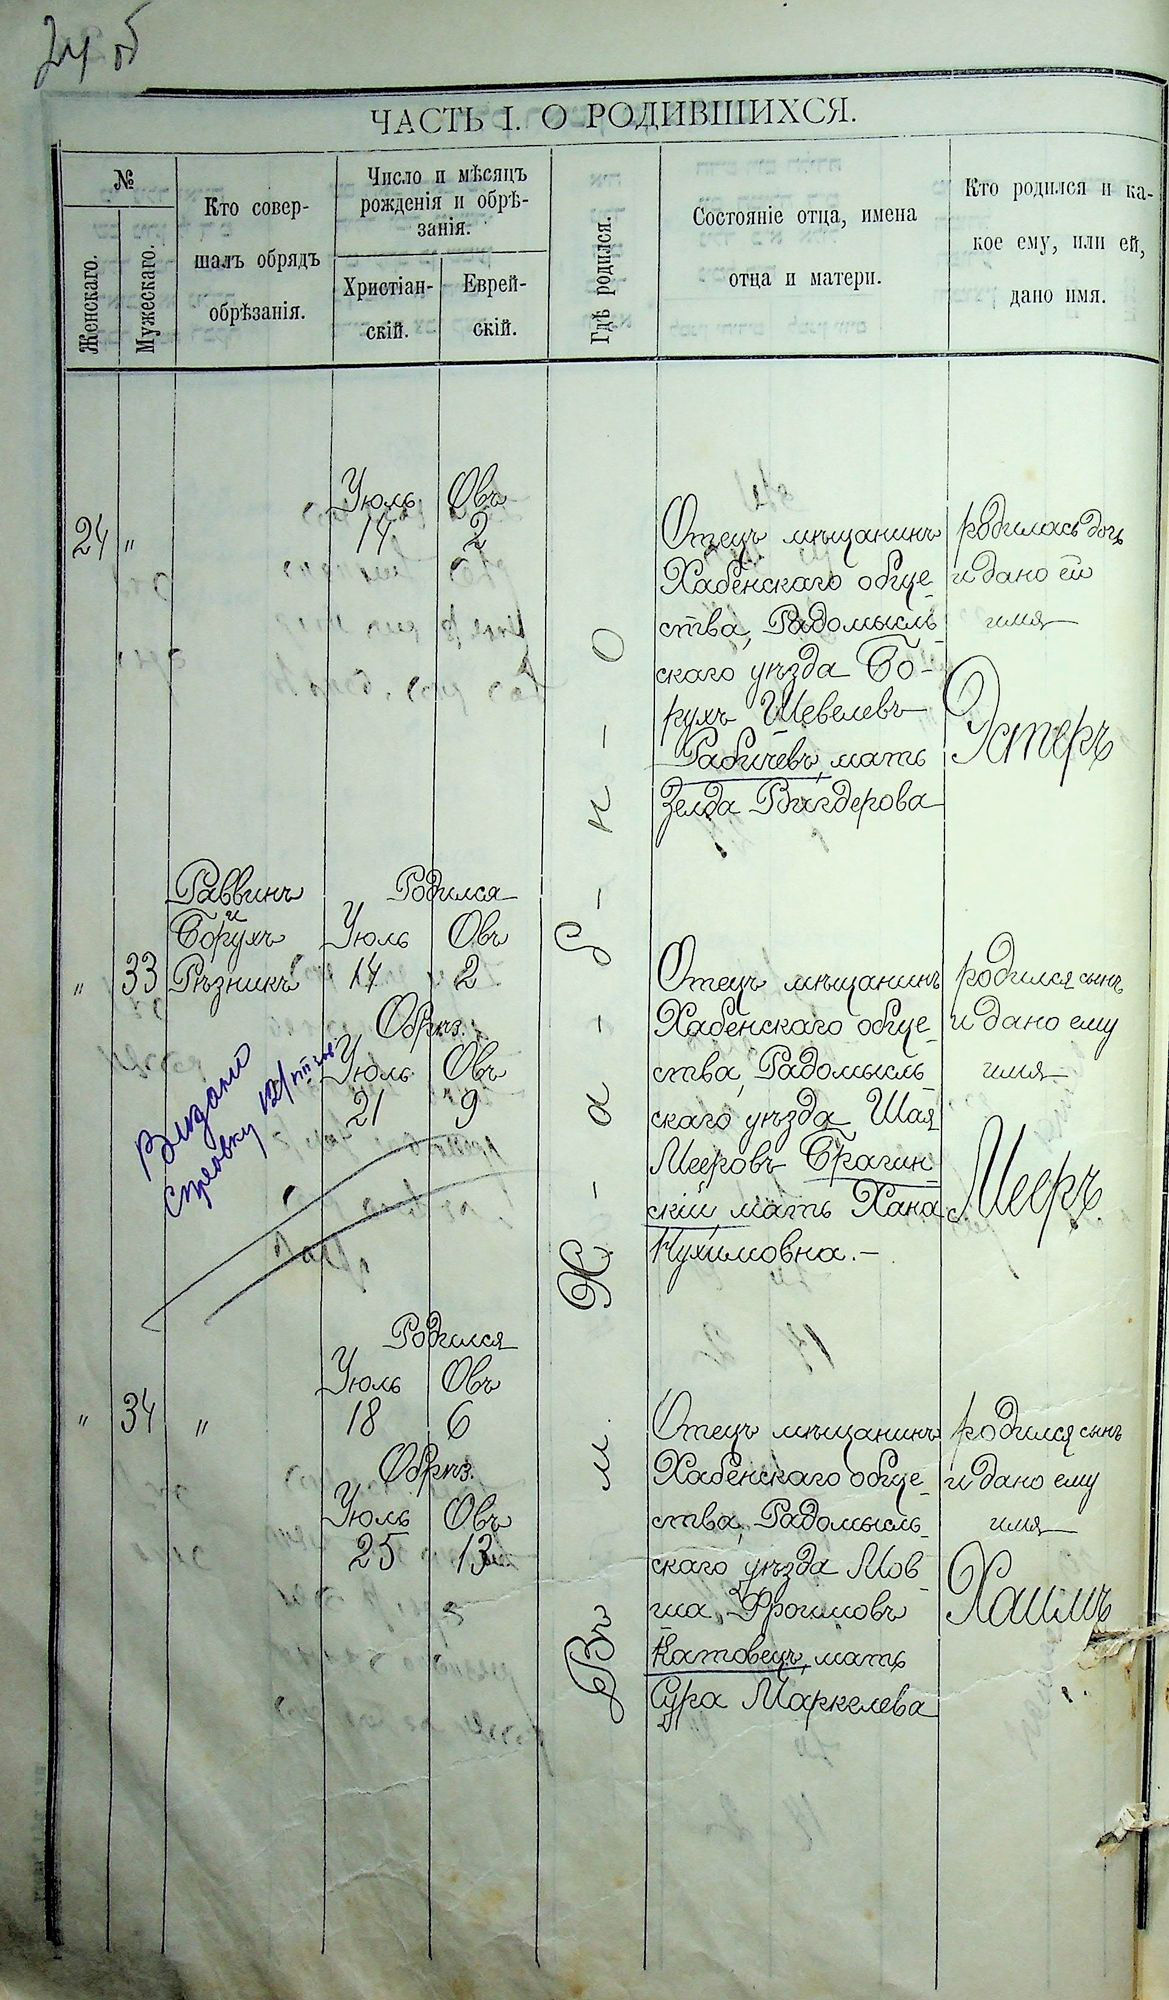 24 об
ЧАСТЬ I. О РОДИВШИХСЯ.
№
Женскаго.
Мужескаго.
Кто совер-
шалъ обрядъ
обрѣзанія.
Число и мѣсяцъ
рожденія и обрѣ-
занія.
Христіан-
скій.
Еврей-
скій.
Гдѣ родился.
Состояніе отца, имена
отца и матери.
Кто родился и ка-
кое ему, или ей,
дано имя.
Въ м. Ха-б-н-о
24 "
Июль Овъ
14 2
Отецъ мѣщанинъ
Хабенскаго обще-
ства, Радомысль-
скаго уѣзда Бо-
рухъ Шевелевъ
Рабичевъ, мать
Зелда Вигдерова
родилась дочь
и дано ей
имя
Эстеръ
" 33
Раввинъ
и
Борухъ
Рѣзникъ
Родился
Июль Овъ
14 2
Обрѣз.
Июль Овъ
21 9
Отецъ мѣщанинъ
Хабенскаго обще-
ства, Радомысль-
скаго уѣзда Шая
Мееровъ Брагин-
скій, мать Хана
Нухимовна.-
родился сынъ
и дано ему
имя
Мееръ
Видано
справку
" 34 "
Родился
Июль Овъ
18 6
Обрѣз.
Июль Овъ
25 13
Отецъ мѣщанинъ
Хабенскаго обще-
ства, Радомысль-
скаго уѣзда Мов-
ша Фроимовъ
Катовецъ, мать
Сура Маркелева
родился сынъ
и дано ему
имя
Хаимъ